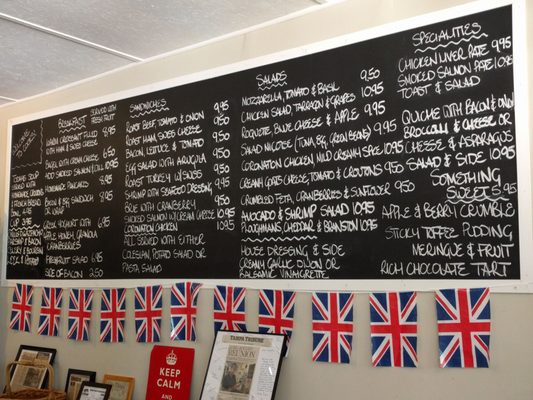 BREAKFAST SERVED WITH FRESH FRUIT
WARM CROISSANT FILLED
WITH HAM & SWISS CHEESE 8.95
BAGEL WITH CREAM CHEESE 6.50
ADD SMOKED SALMON 10.95
HOMEMADE PANCAKES 8.95
BACON & EGG SANDWICH 9.50
OR WRAP
GREEK YOGHURT WITH 6.95
APPLE HONEY GRANOLA
CRANBERRIES
FRESH FRUIT SALAD 5.50
SIDE OF BACON 2.50
TOMATO SOUP
SERVED WITH
& FRENCH BREAD
BOWL 4.95
CUP
SANDWICHES
ROAST BEEF TOMATO & ONION 9.95
ROAST HAM, SWISS CHEESE 9.50
BACON, LETTUCE & TOMATO
EGG SALAD WITH ARUGULA
ROAST TURKEY W/SWISS
SHRIMP WITH SEAFOOD DRESSING
BRIE WITH CRANBERRY
SMOKED SALMON W CREAM CHEESE 10.95
CORONATION CHICKEN 10.95
ALL SERVED WITH EITHER
COLESLAW, POTATO SALAD OR
PASTA SALAD
SALADS
MOZZARELLA, TOMATO & BASIL 9.50
CHICKEN SALAD, TARRAGON & GRAPES 10.95
ROQUETTE, BLUE CHEESE & APPLE 9.95
SALAD NICOISE (TUNA, EGG, GREEN BEANS) 9.95
CORONATION CHICKEN, MILD CREAMY SPICE 10.95
CREAMY GOATS CHEESE TOMATO & CROUTONS 9.50
CRUMBLED FETA, CRANBERRIES & SUNFLOWER 9.50
AVOCADO & SHRIMP SALAD 10.95
PLOUGHMANS, CHEDDAR & BRANSTON 10.95
HOUSE DRESSING & SIDE
CREAMY GARLIC, DIJON OR
BALSAMIC VINAIGRETTE
SPECIALITIES
CHICKEN LIVER PATE 9.95
SMOKED SALMON PATE 10.95
TOAST & SALAD
QUICHE WITH BACON & ONION
BROCCOLI & CHEESE OR
CHEESE & ASPARAGUS
SALAD & SIDE 10.95
SOMETHING
SWEET 5.95
APPLE & BERRY CRUMBLE
STICKY TOFFEE PUDDING
MERINGUE & FRUIT
RICH CHOCOLATE TART
KEEP
CALM
AND
TAMPA TRIBUNE
REUNION